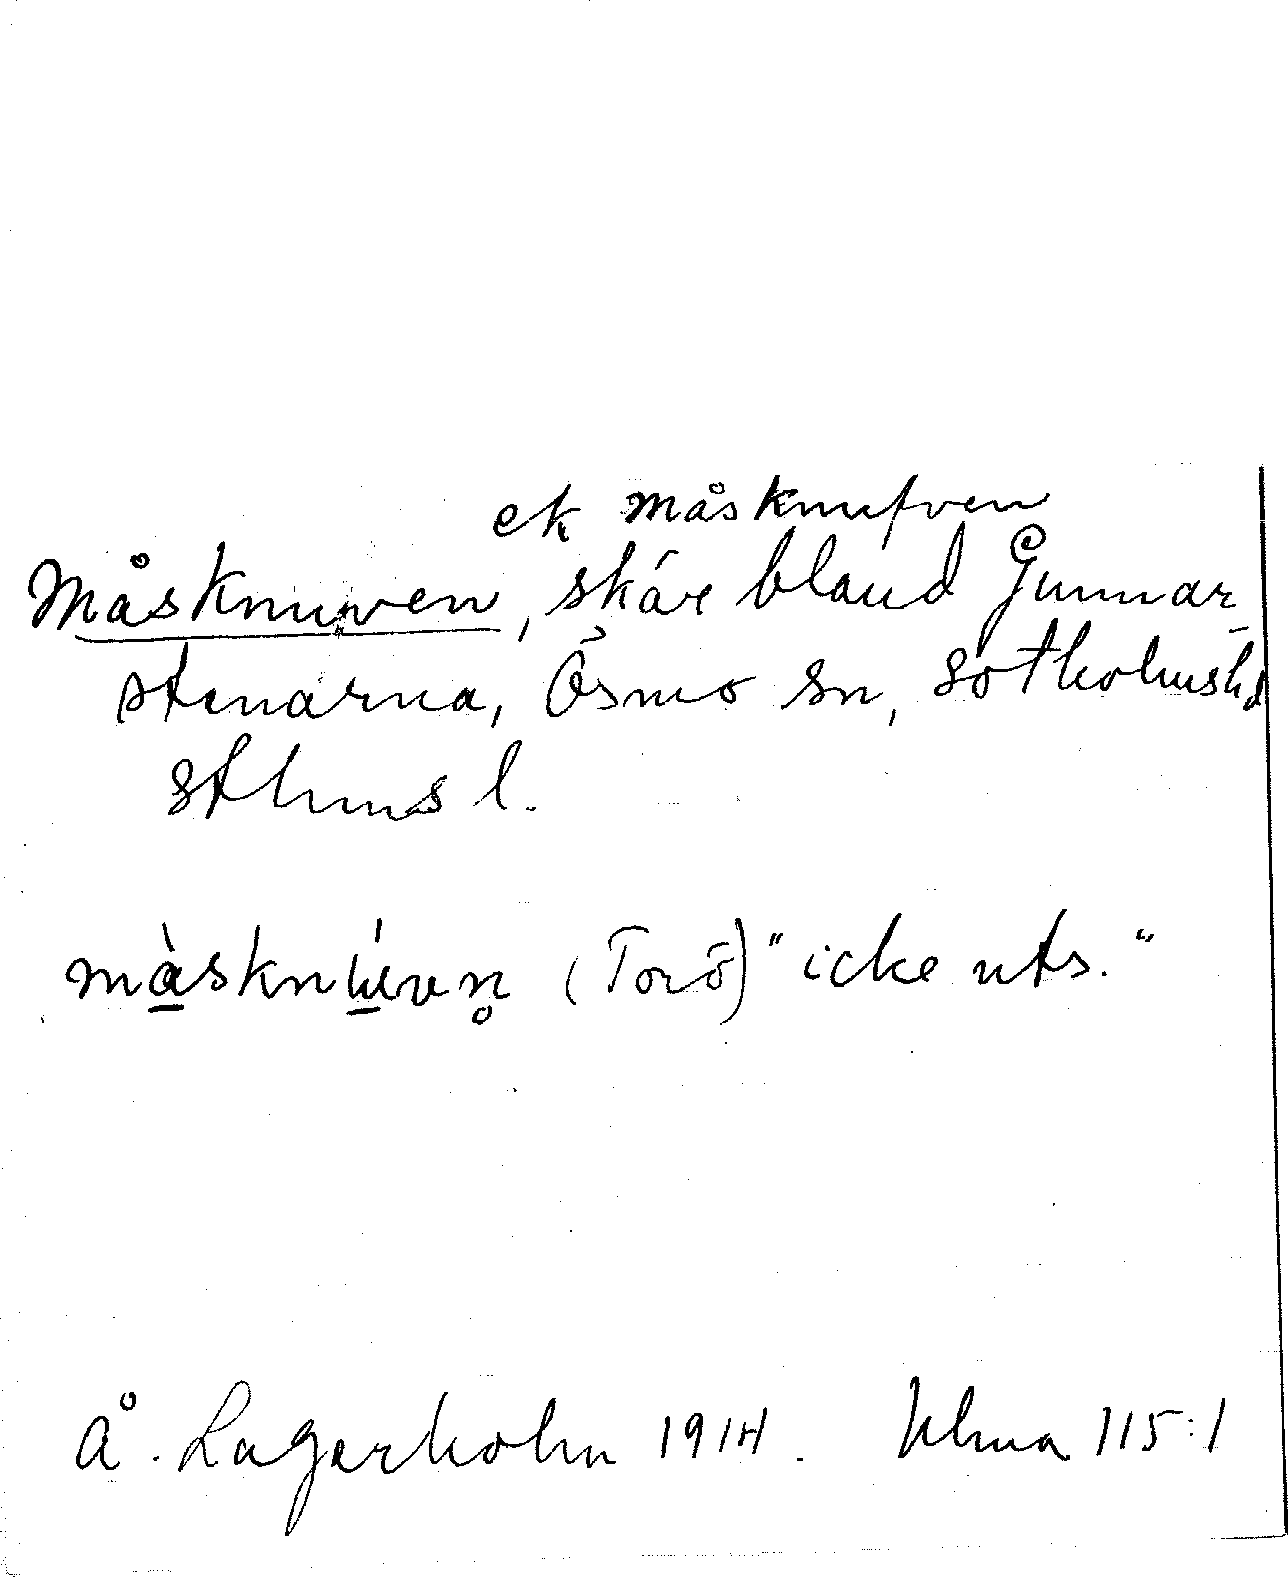 ek Måsknufven
Måsknuven, skär bland Gunnar-
stenarna, Ösmo sn, Sotholms hd
Sthms l.
mὰsknúven̥ (Torö) "icke uts."
Å. Lagerholm 1914. Ulma 115:1